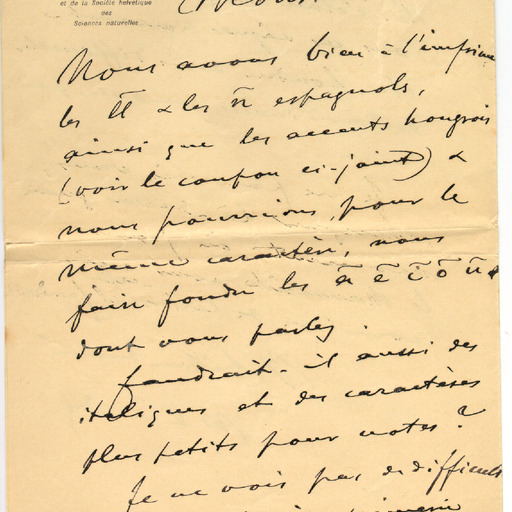 et de la Société helvétique
des
Sciences naturelles
Nous avons bien à l'imprime
les l̃l̃ & les ñ espagnols,
ainsi que les accents hongrois
(voir le coupon ci-joint) &
nous pourrions, pour le
même caractère, nous
faire fondre les ã ẽ ĩ õ ũ &
dont vous parlez.
Faudrait-il aussi des
italiques et des caractères
plus petits pour notes?
Je ne vois pas de difficult